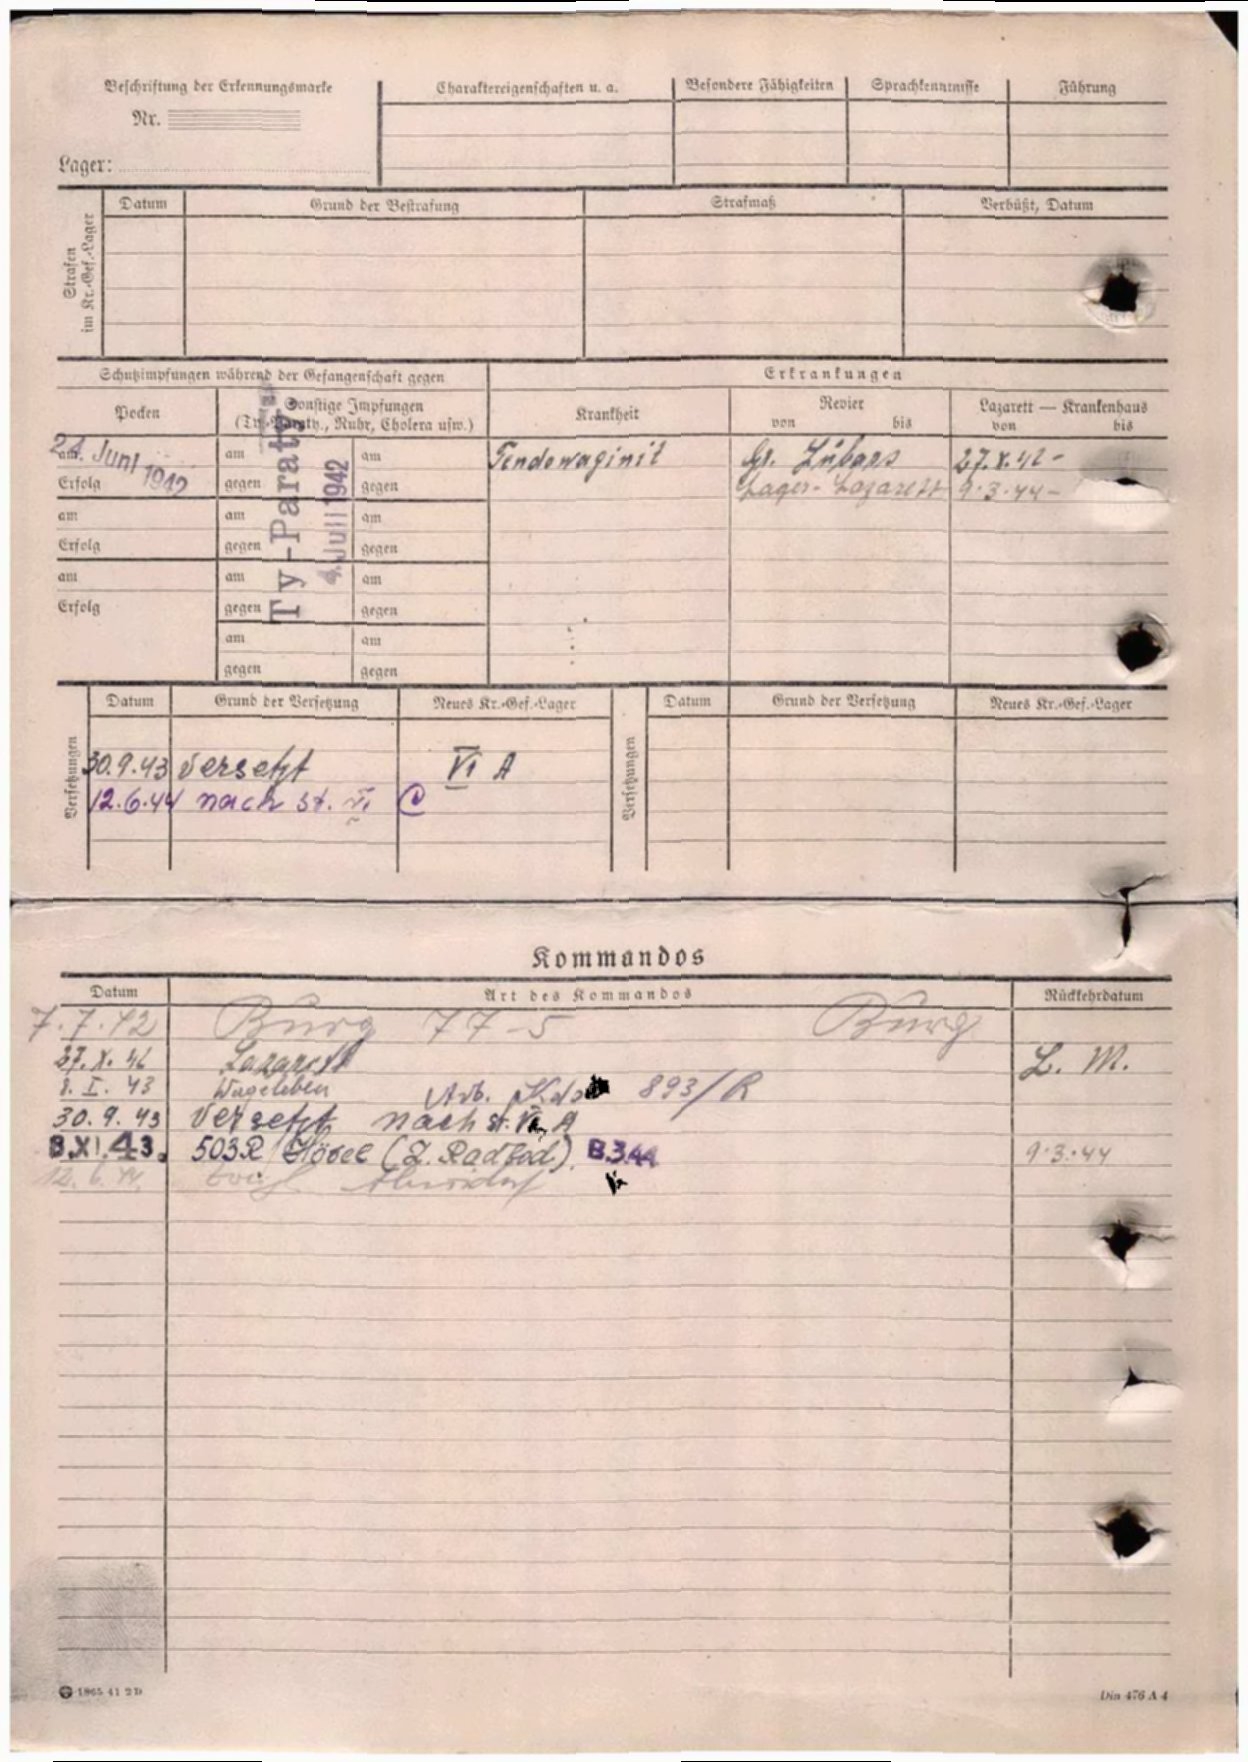 Beschriftung der Erkennungsmarke
Nr.
Lager:
Charaktereigenschaften u. a.
Besondere Fähigkeiten
Sprachkenntnisse
Führung
Strafen
im Kr.-Gef.-Lager
Datum
Grund der Bestrafung
Strafmaß
Verbüßt, Datum
Schutzimpfungen während der Gefangenschaft gegen
Erkrankungen
Pocken
Sonstige Impfungen
(Ty.-Paraty., Ruhr, Cholera usw.)
Krankheit
Revier
von bis
Lazarett — Krankenhaus
von bis
am 24. Juni 1942
Erfolg
am
Erfolg
am
Erfolg
am am
gegen gegen
am am
gegen gegen
am am
gegen gegen
am am
gegen gegen
Ty-Paraty.
4. Juli 1942
Tendowaginit Gr. Lübars 27.X.42-
Lager-Lazarett 9.3.44-
Versetzungen
Datum Grund der Versetzung Neues Kr.-Gef.-Lager
30.9.43 versetzt VI A
12.6.44 nach St. VI C
Versetzungen
Datum Grund der Versetzung Neues Kr.-Gef.-Lager
Kommandos
Datum Art des Kommandos Rückkehrdatum
7.7.42 Burg 77-5 Burg
27.X.42 Lazarett L. M.
8.I.43 Wageleben Arb. Kdo 893/R
30.9.43 versetzt nach St. VI A
8.XI.43. 503R Hövel (Z. Radbod.). 8.3.44 9.3.44
12.6.44
1865 41 2D
Din 476 A 4